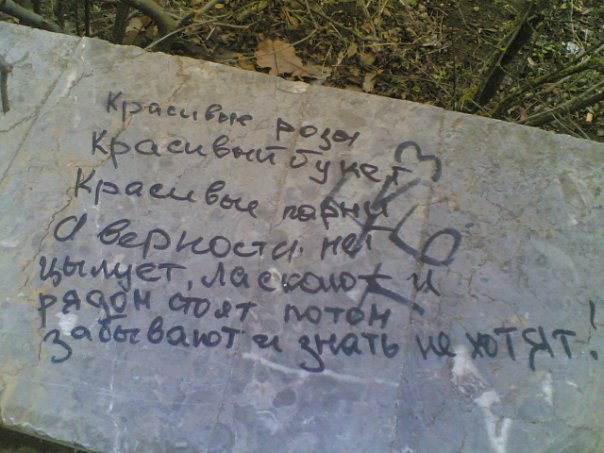 Красивые розы
Красивый букет
Красивые парни
а верности нет
цылует, ласкают и
рядом стоят потом
забывают и знать не хотят!